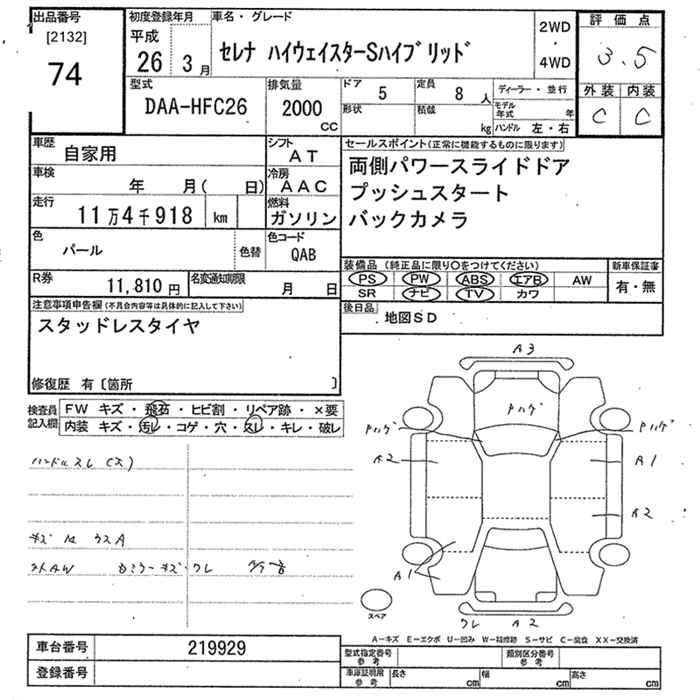 出品番号
[2132]
74
初度登録年月
平成
26 3 月
車名・グレード
セレナ ハイウェイスターSハイブリッド
2WD
・
4WD
評価点
3.5
外装 内装
C C
型式
DAA-HFC26
排気量
2000
CC
ドア 5
形状
定員 8 人
積載 kg
ディーラー・並行
モデル年式 年
ハンドル 左・右
車歴 自家用
シフト AT
車検 年 月( 日)
冷房 AAC
走行 11万4千918 km
燃料 ガソリン
色 パール 色替
色コード QAB
R券 11,810 円
名変通知期限 月 日
セールスポイント(正常に機能するものに限ります)
両側パワースライドドア
プッシュスタート
バックカメラ
装備品(純正品に限り○をつけてください)
PS PW ABS エアB AW
SR ナビ TV カワ
新車保証書
有・無
後日品 地図SD
注意事項申告欄(不具合内容等は具体的に記入して下さい)
スタッドレスタイヤ
修復歴 有〔箇所 〕
検査員記入欄
FW キズ・飛石・ヒビ割・リペア跡・×要
内装 キズ・汚レ・コゲ・穴・スレ・キレ・破レ
ハンドルスレ(ス)
キズ 凹 ウスA
A3
ハゲ
ハゲ
ハゲ
A2
A1
A2
A1
ワレ A2
スペア
A-キズ E-エクボ U-凹み W-補修跡 S-サビ C-腐食 XX-交換済
車台番号 219929
登録番号
型式指定番号 参考
類別区分番号 参考
車庫証明用 参考
長さ cm 幅 cm 高さ cm